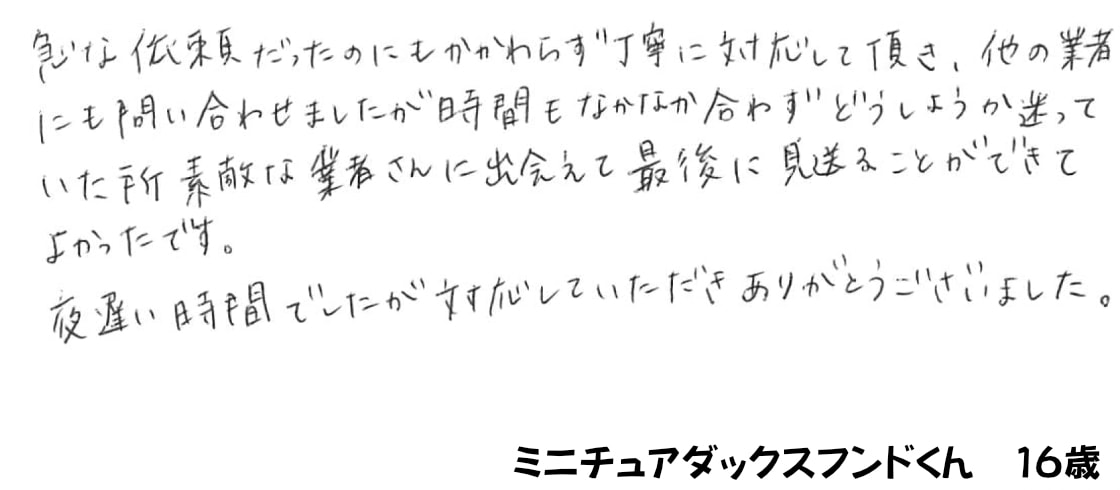 急な依頼だったのにもかかわらず丁寧に対応して頂き、他の業者
にも問い合わせましたが時間もなかなか合わずどうしようか迷って
いた所素敵な業者さんに出会えて最後に見送ることができて
よかったです。
夜遅い時間でしたが対応していただきありがとうございました。
ミニチュアダックスフンドくん　16歳